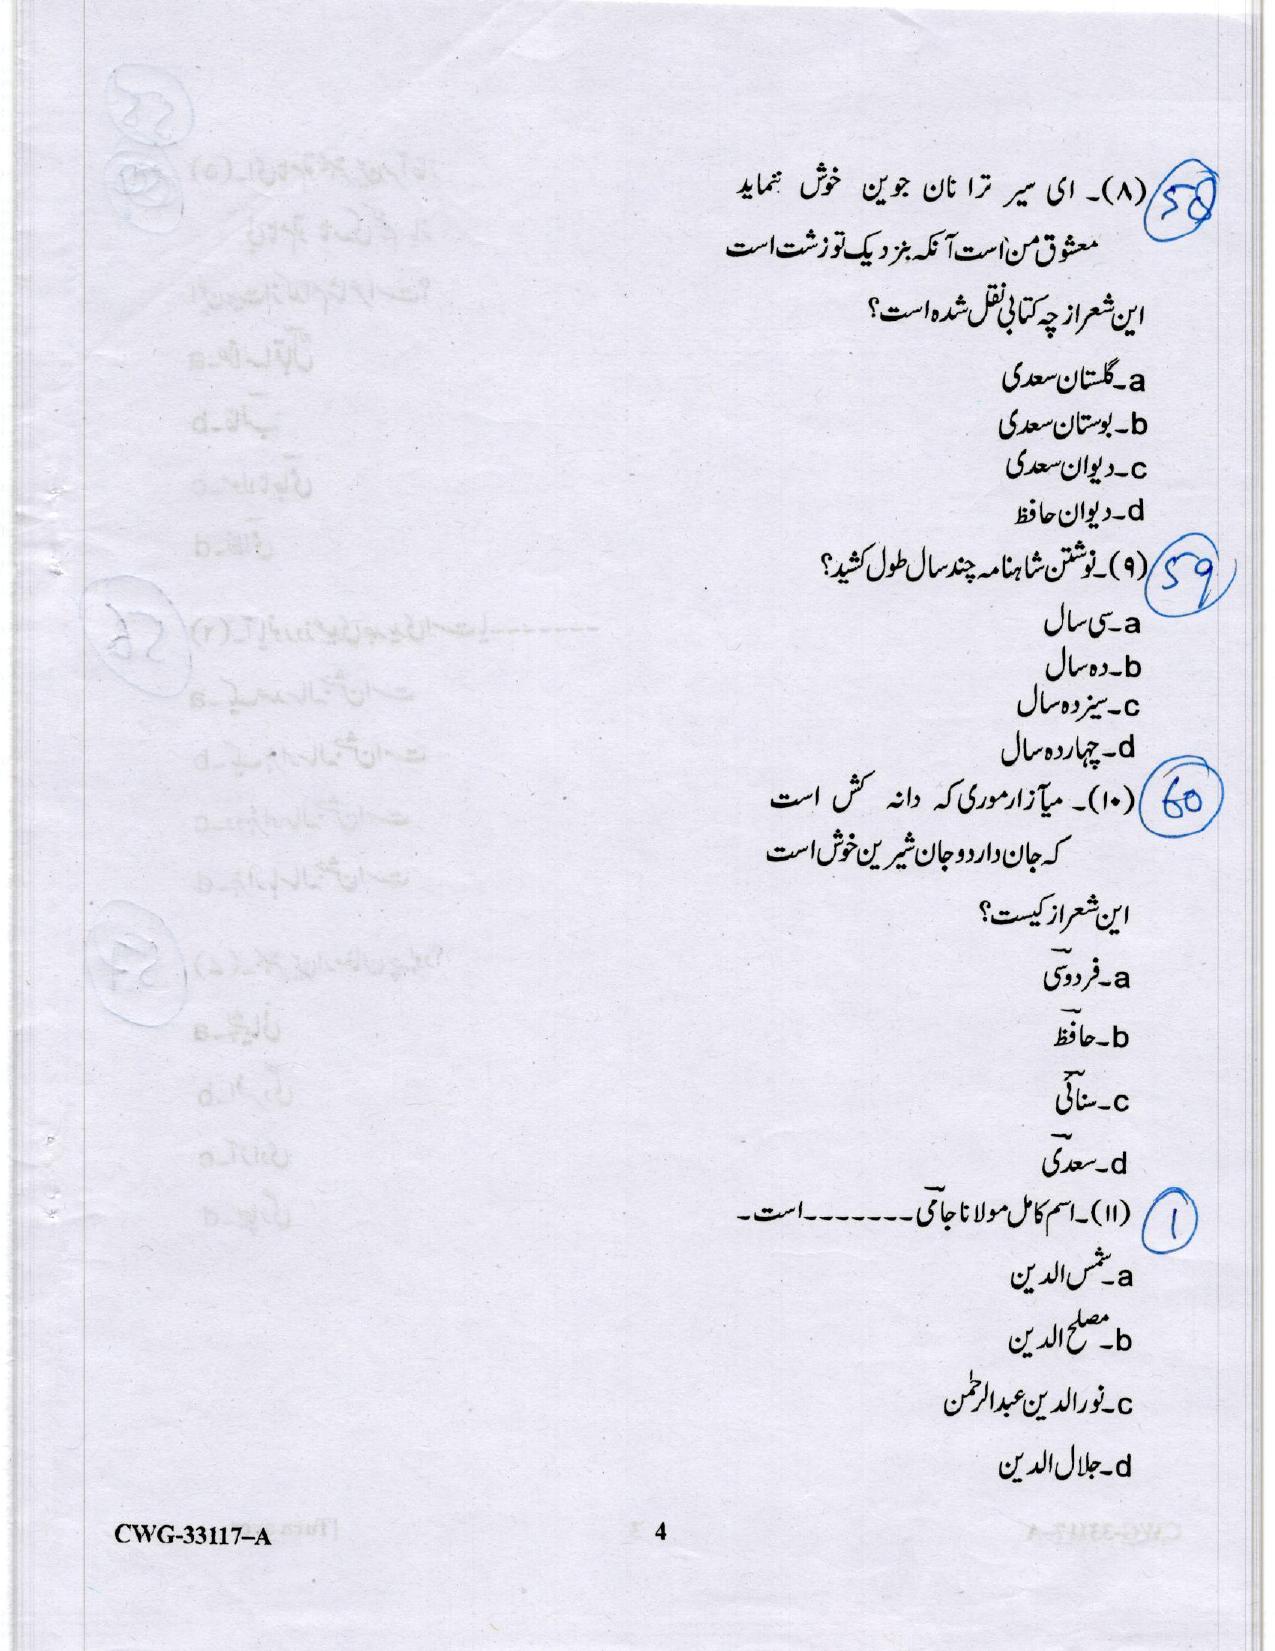 58 (۸)۔ ای سیر ترا نان جوین خوش ننماید
معشوق من است آنکہ بنزدیک تو زشت است
این شعر از چہ کتابی نقل شدہ است؟
a۔ گلستان سعدی
b۔ بوستان سعدی
c۔ دیوان سعدی
d۔ دیوان حافظ
59 (۹)۔ نوشتن شاہنامہ چند سال طول کشید؟
a۔ سی سال
b۔ دہ سال
c۔ سیزدہ سال
d۔ چہاردہ سال
60 (۱۰)۔ میآزار موری کہ دانہ کش است
کہ جان دارد و جان شیرین خوش است
این شعر از کیست؟
a۔ فردوسیؔ
b۔ حافظؔ
c۔ سنائیؔ
d۔ سعدیؔ
1 (۱۱)۔ اسم کامل مولانا جامیؔ ۔۔۔۔۔۔۔ است۔
a۔ شمس الدین
b۔ مصلح الدین
c۔ نورالدین عبدالرحمٰن
d۔ جلال الدین
CWG-33117–A 4